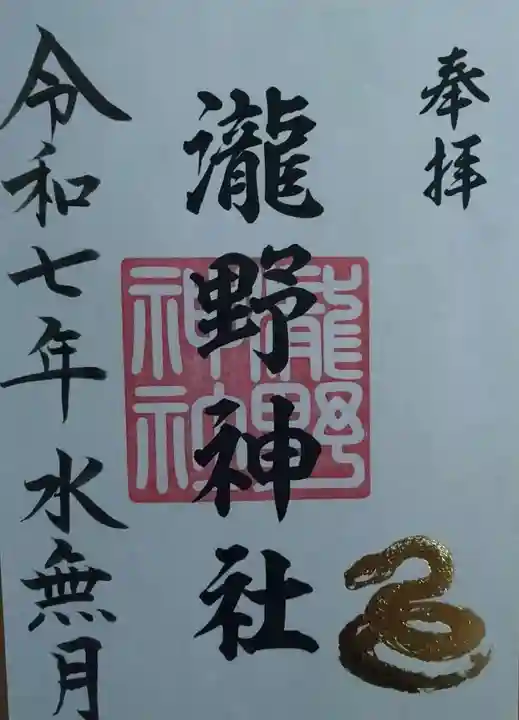 奉拝
瀧野神社
瀧野
神社
令和七年水無月